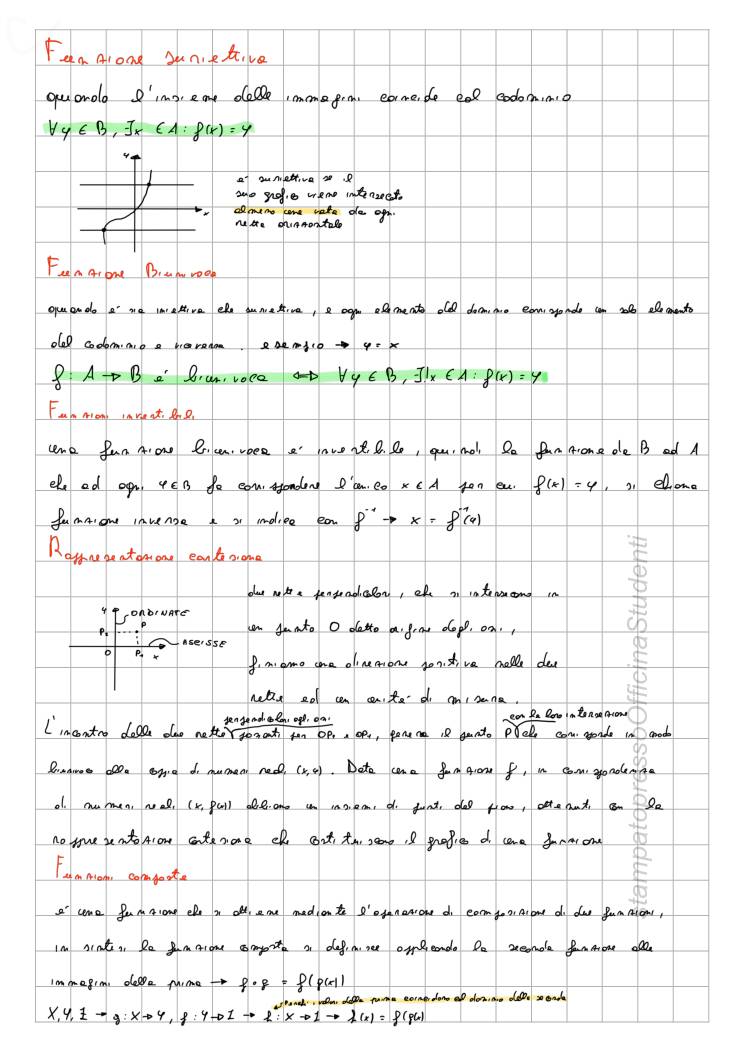 Funzione suriettiva
quando l'insieme delle immagini coincide col codominio
∀y ∈ B, ∃x ∈ A : f(x) = y
y
x
è suriettiva se il
suo grafico viene intersecato
almeno una volta da ogni
retta orizzontale
Funzione Biunivoca
quando è sia iniettiva che suriettiva, e ogni elemento del dominio corrisponde un solo elemento
del codominio e viceversa. esempio → y = x
f : A → B è biunivoca ⇔ ∀y ∈ B, ∃!x ∈ A : f(x) = y
Funzioni invertibili
una funzione biunivoca è invertibile, quindi la funzione da B ad A
che ad ogni y ∈ B fa corrispondere l'unico x ∈ A per cui f(x) = y, si chiama
funzione inversa e si indica con f⁻¹ → x = f⁻¹(y)
Rappresentazione cartesiana
due rette perpendicolari, che si intersecano in
un punto O detto origine degli assi,
fissiamo una direzione positiva nelle due
rette ed un unità di misura.
y
ORDINATE
P₂
P
ASCISSE
O
P₁
x
perpendicolari agli assi
con la loro intersezione
L'incontro delle due rette passanti per OP₁ e OP₂, genera il punto P che corrisponde in modo
biunivoco alla coppia di numeri reali (x, y). Data una funzione f, in corrispondenza
di numeri reali (x, f(x)) abbiamo un insiemi di punti del piano, ottenuti con la
rappresentazione cartesiana che costituiscono il grafico di una funzione
Funzioni composte
è una funzione che si ottiene mediante l'operazione di composizione di due funzioni,
in sintesi la funzione composta si definisce applicando la seconda funzione alle
immagini della prima → f∘g = f(g(x))
i valori della prima coincidono al dominio della seconda
X, Y, Z → g : X → Y, f : Y → Z → h : X → Z → h(x) = f(g(x)
stampatopressoOfficinaStudenti